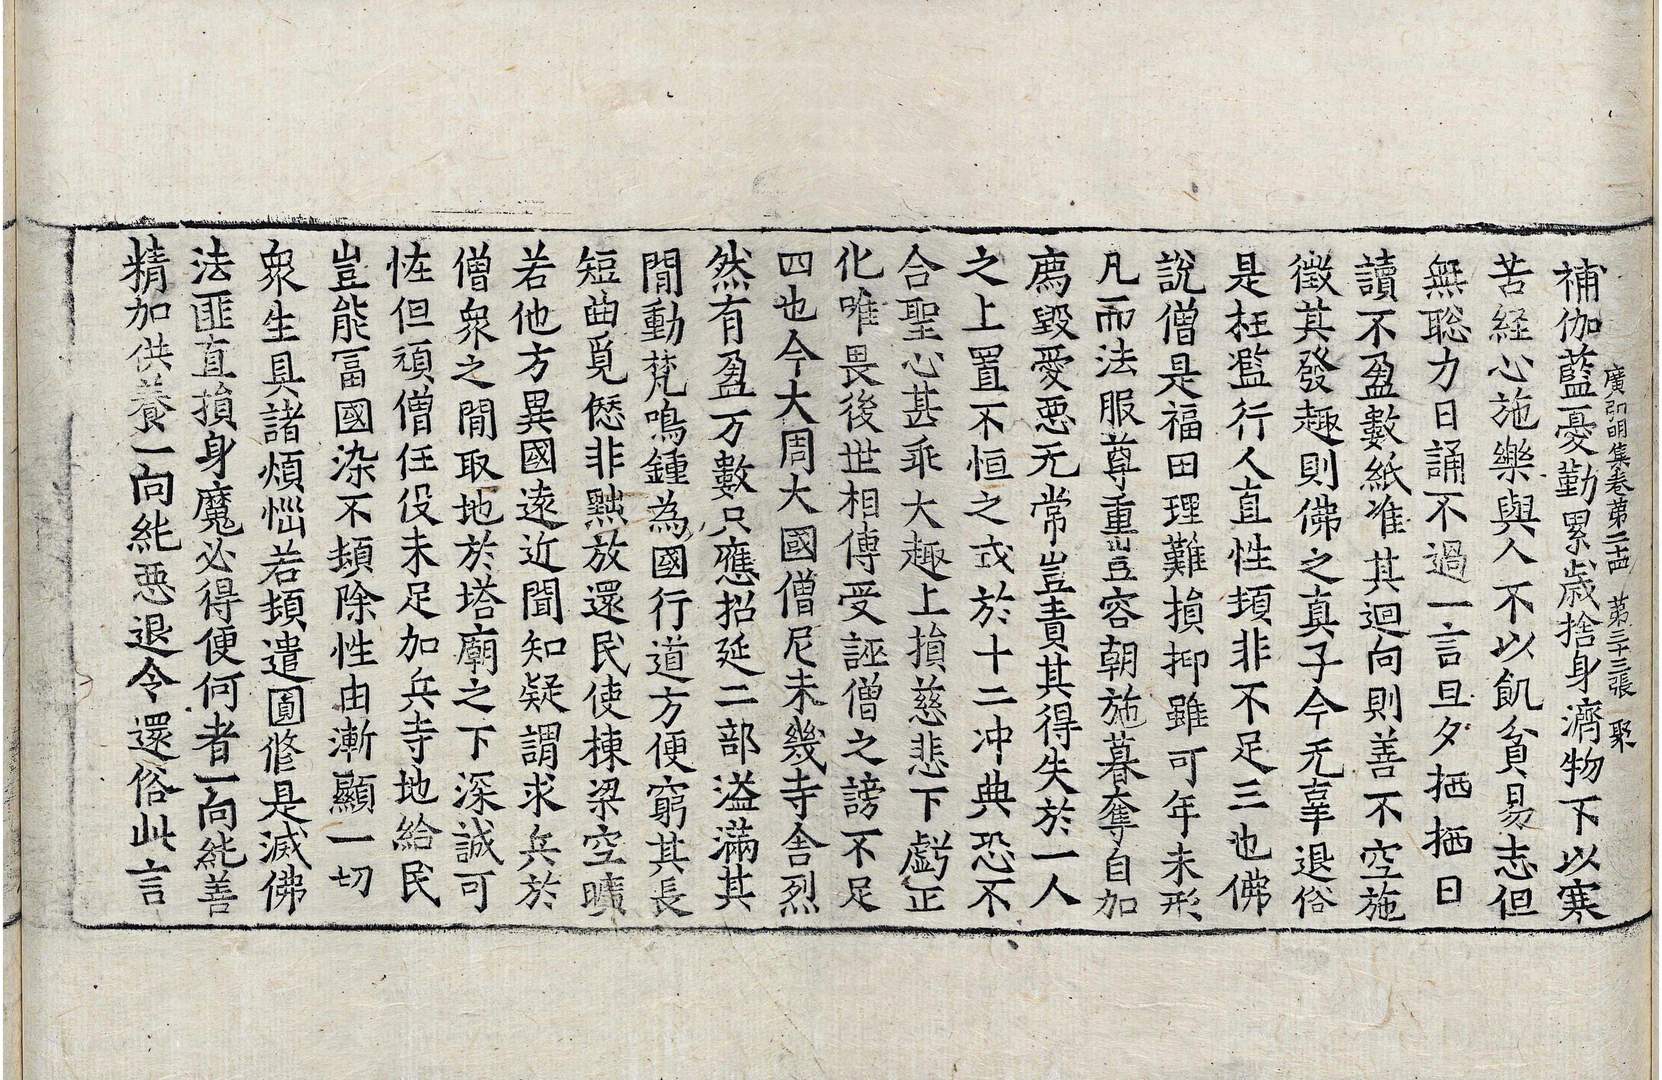 廣弘明集卷第二十四 第三十三張 聚
補伽藍憂勤累歲捨身濟物下以寒
苦経心施樂與人不以飢貧易志但
無聡力日誦不過一言旦夕栖栖日
讀不盈數紙准其迴向則善不空施
徵其發趣則佛之真子今无辜退俗
是枉濫行人直性頓非不足三也佛
說僧是福田理難損抑雖可年未形
凡而法服尊重豈容朝施暮奪自加
廌毀愛惡无常豈責其得失於一人
之上置不恒之式於十二冲典恐不
合聖心甚乖大趣上損慈悲下虧正
化唯畏後世相傳受誣僧之謗不足
四也今大周大國僧尼未幾寺舎烈
然有盈万數只應招延二部溢滿其
閒動梵鳴鍾為國行道方便窮其長
短曲覓愆非黜放還民使棟梁空曠
若他方異國遠近聞知疑謂求兵於
僧衆之閒取地於塔廟之下深誠可
恠但頑僧任役未足加兵寺地給民
豈能冨國染不頓除性由漸顯一切
衆生具諸煩惱若頓遣圓修是滅佛
法匪直損身魔必得便何者一向純善
精加供養一向純惡退令還俗此言